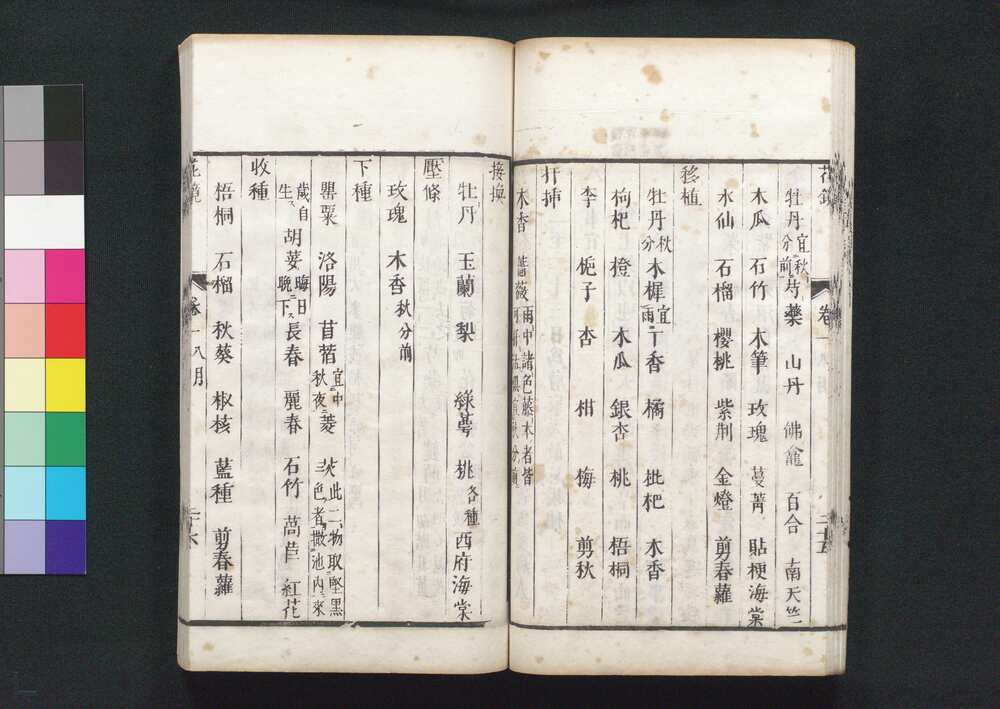 花鏡 卷一 八月 二十五
牡丹 宜秋分前 芍藥 山丹 佛龕 百合 南天竺
木瓜 石竹 木筆 玫瑰 蔓菁 貼梗海棠
水仙 石榴 櫻桃 紫荊 金燈 剪春蘿
移植
牡丹 秋分 木樨 宜雨 丁香 橘 枇杷 木香
枸杞 橙 木瓜 銀杏 桃 梧桐
李 梔子 杏 柑 梅 剪秋
扦揷
木香 薔薇 雨中諸色藤木者皆
接換
牡丹 玉蘭 梨 綠萼 桃 各種 西府海棠
壓條
玫瑰 木香 秋分前
下種
罌粟 洛陽 苜蓿 宜中秋夜 菱 芡 此二物取堅黑三色者撒池內來
歲自生 胡荽 晦日晚下 長春 麗春 石竹 萵苣 紅花
收種
梧桐 石榴 秋葵 椒核 藍種 剪春蘿
花鏡 卷一 八月 二十六